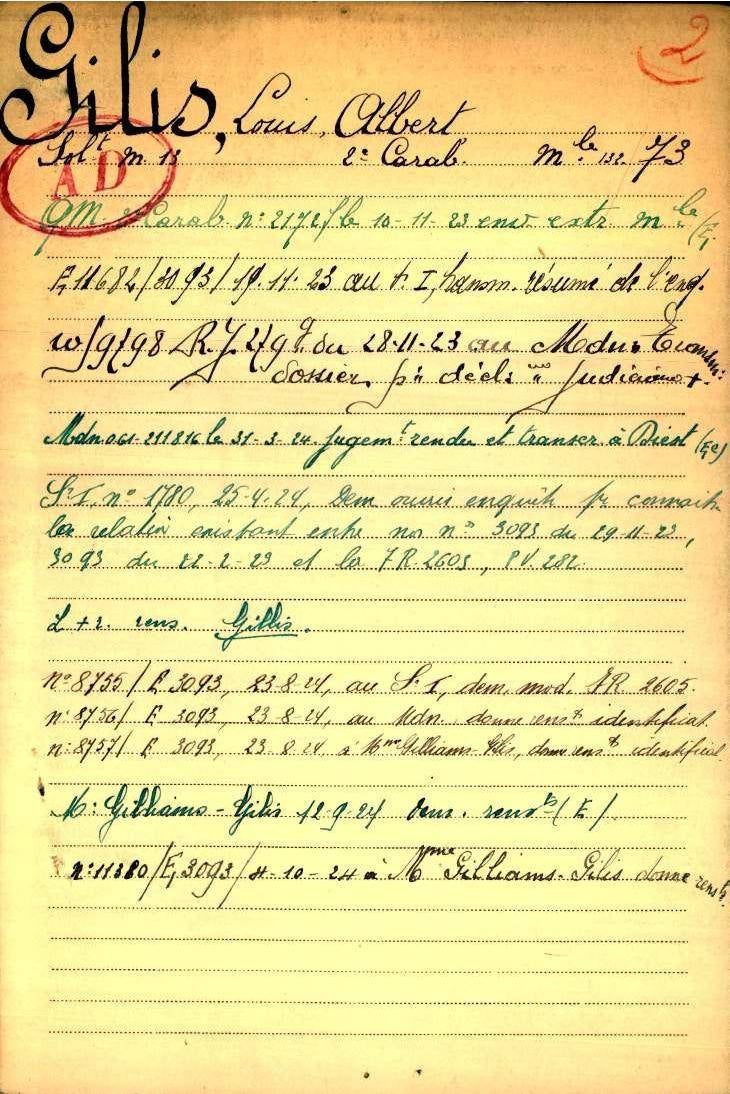 2
Gilis, Louis, Albert
Solt m. 13 2e Carab. mle. 132/73
AD
QM. 2e Carab. n: 21727 le 10-11-23 env extr mle (E,
E, 11682/3093/19.11.23 au S. I, transm. résumé de l'eng.
28-11-23 au Mdn.
dossier, pr décls judiciaires +.
Mdn 061-211816 le 31-3-24 jugemt rendu et transcr à Diest (Ee)
St. I, no 1780, 25-4-24, Dem ouvrir enquête pr connaitre
la relation existant entre nos nos 3093 du 29-11-23,
3093 du 22-2-23 et la FR. 2605, PV. 282.
rens. Gillis.
no 8755/ E 3093, 23-8-24, au St. I, dem. mod. FR 2605.
n: 8756/ E 3093, 23-8-24, au Mdn donne rensts identificat.
n: 8757/ E 3093, 23-8-24 à Mme Gilliams-Gilis, donne rensts identificat.
M: Gilliams-Gilis 12-9-24 Dem. rensts (E)
n: 11380/E, 3093/ -10-24 à Mme Gilliams-Gilis donne rensts.